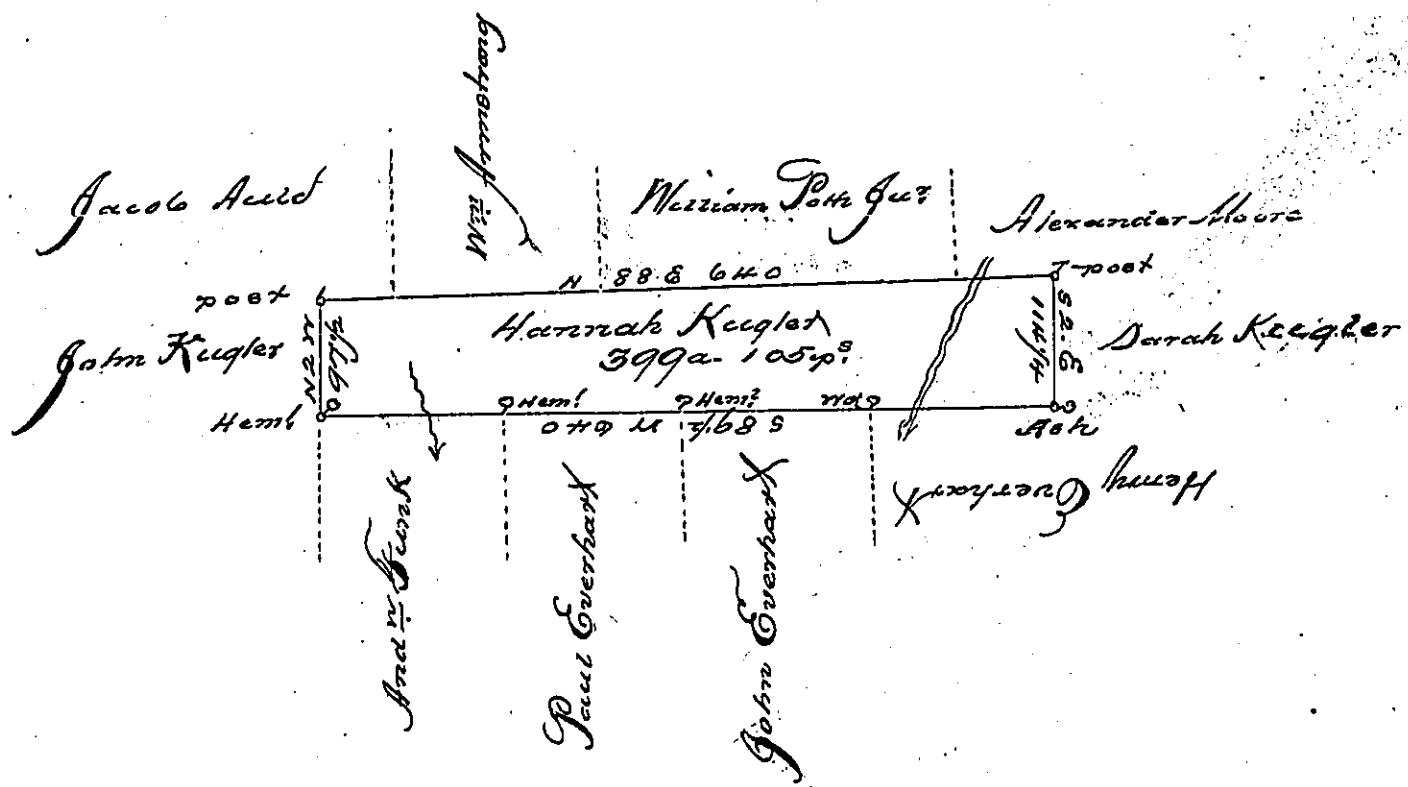 Jacob Auld
Wm Armstrong
William Poth Jur
Alexander Moore
post
N 88 E 640
post
John Kugler
N 2 W
Hannah Kugler
399a - 105 ps
S 2 E
114¼
Sarah Kugler
Heml
Heml
Heml
WO
Ash
S 89½ W 640
Andw Funk
Paul Everhart
John Everhart
Henry Everhart